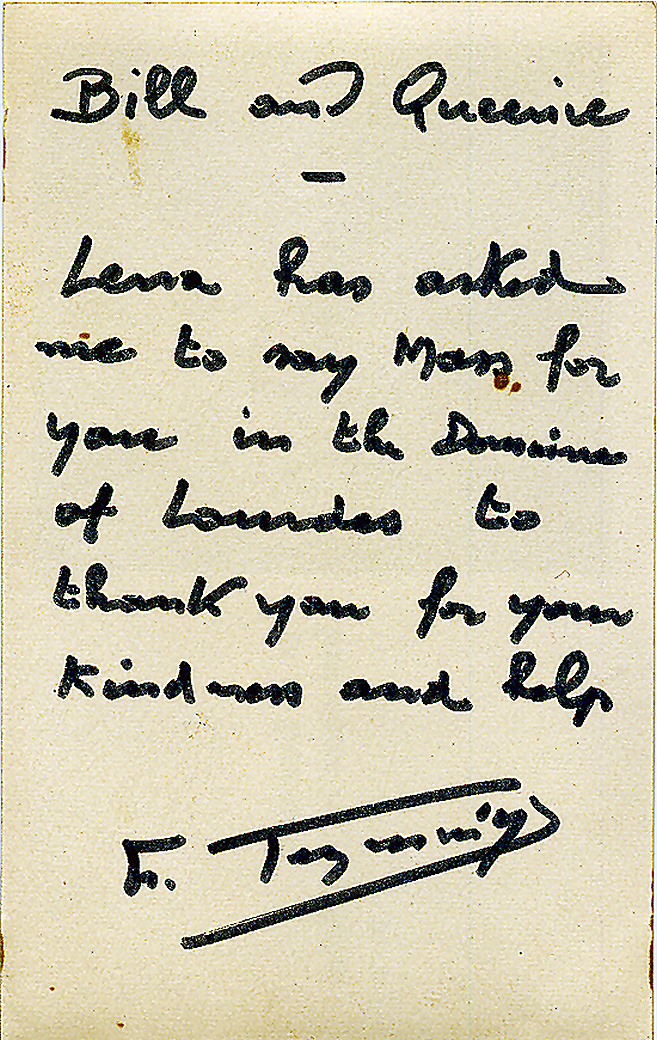 Bill and Queenie
—
Lena has asked
me to say Mass for
you in the Domaine
of Lourdes to
thank you for your
kindness and help
Fr.